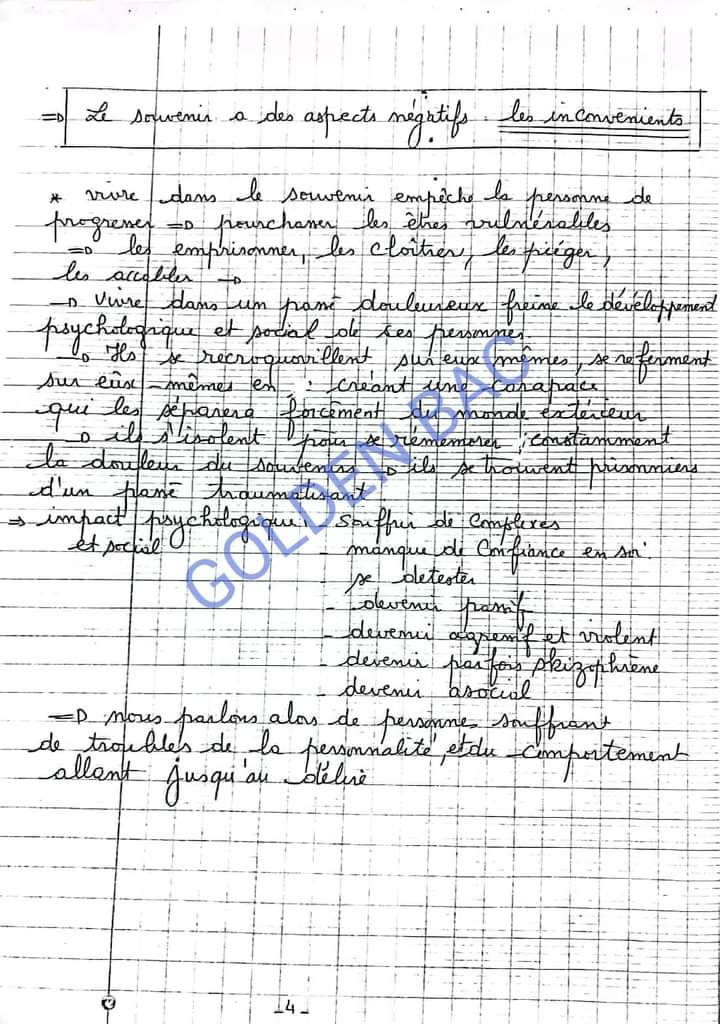 => Le souvenir a des aspects négatifs : les inconvenients
* vivre dans le souvenir empêche la personne de
progresser => pourchasser les êtres vulnérables
=> les emprisonner, les cloîtrer, les piéger,
les accabler →
→ Vivre dans un passé douloureux freine le développement
psychologique et social de ces personnes.
→ Ils se recroquevillent sur eux mêmes, se referment
sur eux-mêmes en : créant une carapace
qui les séparera forcément du monde extérieur
→ ils s'isolent pour se rémémorer constamment
la douleur du souvenir → ils se trouvent prisonniers
d'un passé traumatisant
=> impact psychologique : - souffrir de complexes
et social - manque de confiance en soi.
- se detester
- devenir passif
- devenir agressif et violent
- devenir parfois skizophrène
- devenir asocial
=> Nous parlons alors de personnes souffrant
de troubles de la personnalité et du comportement
allant jusqu'au délire
GOLDEN BAC
-4-